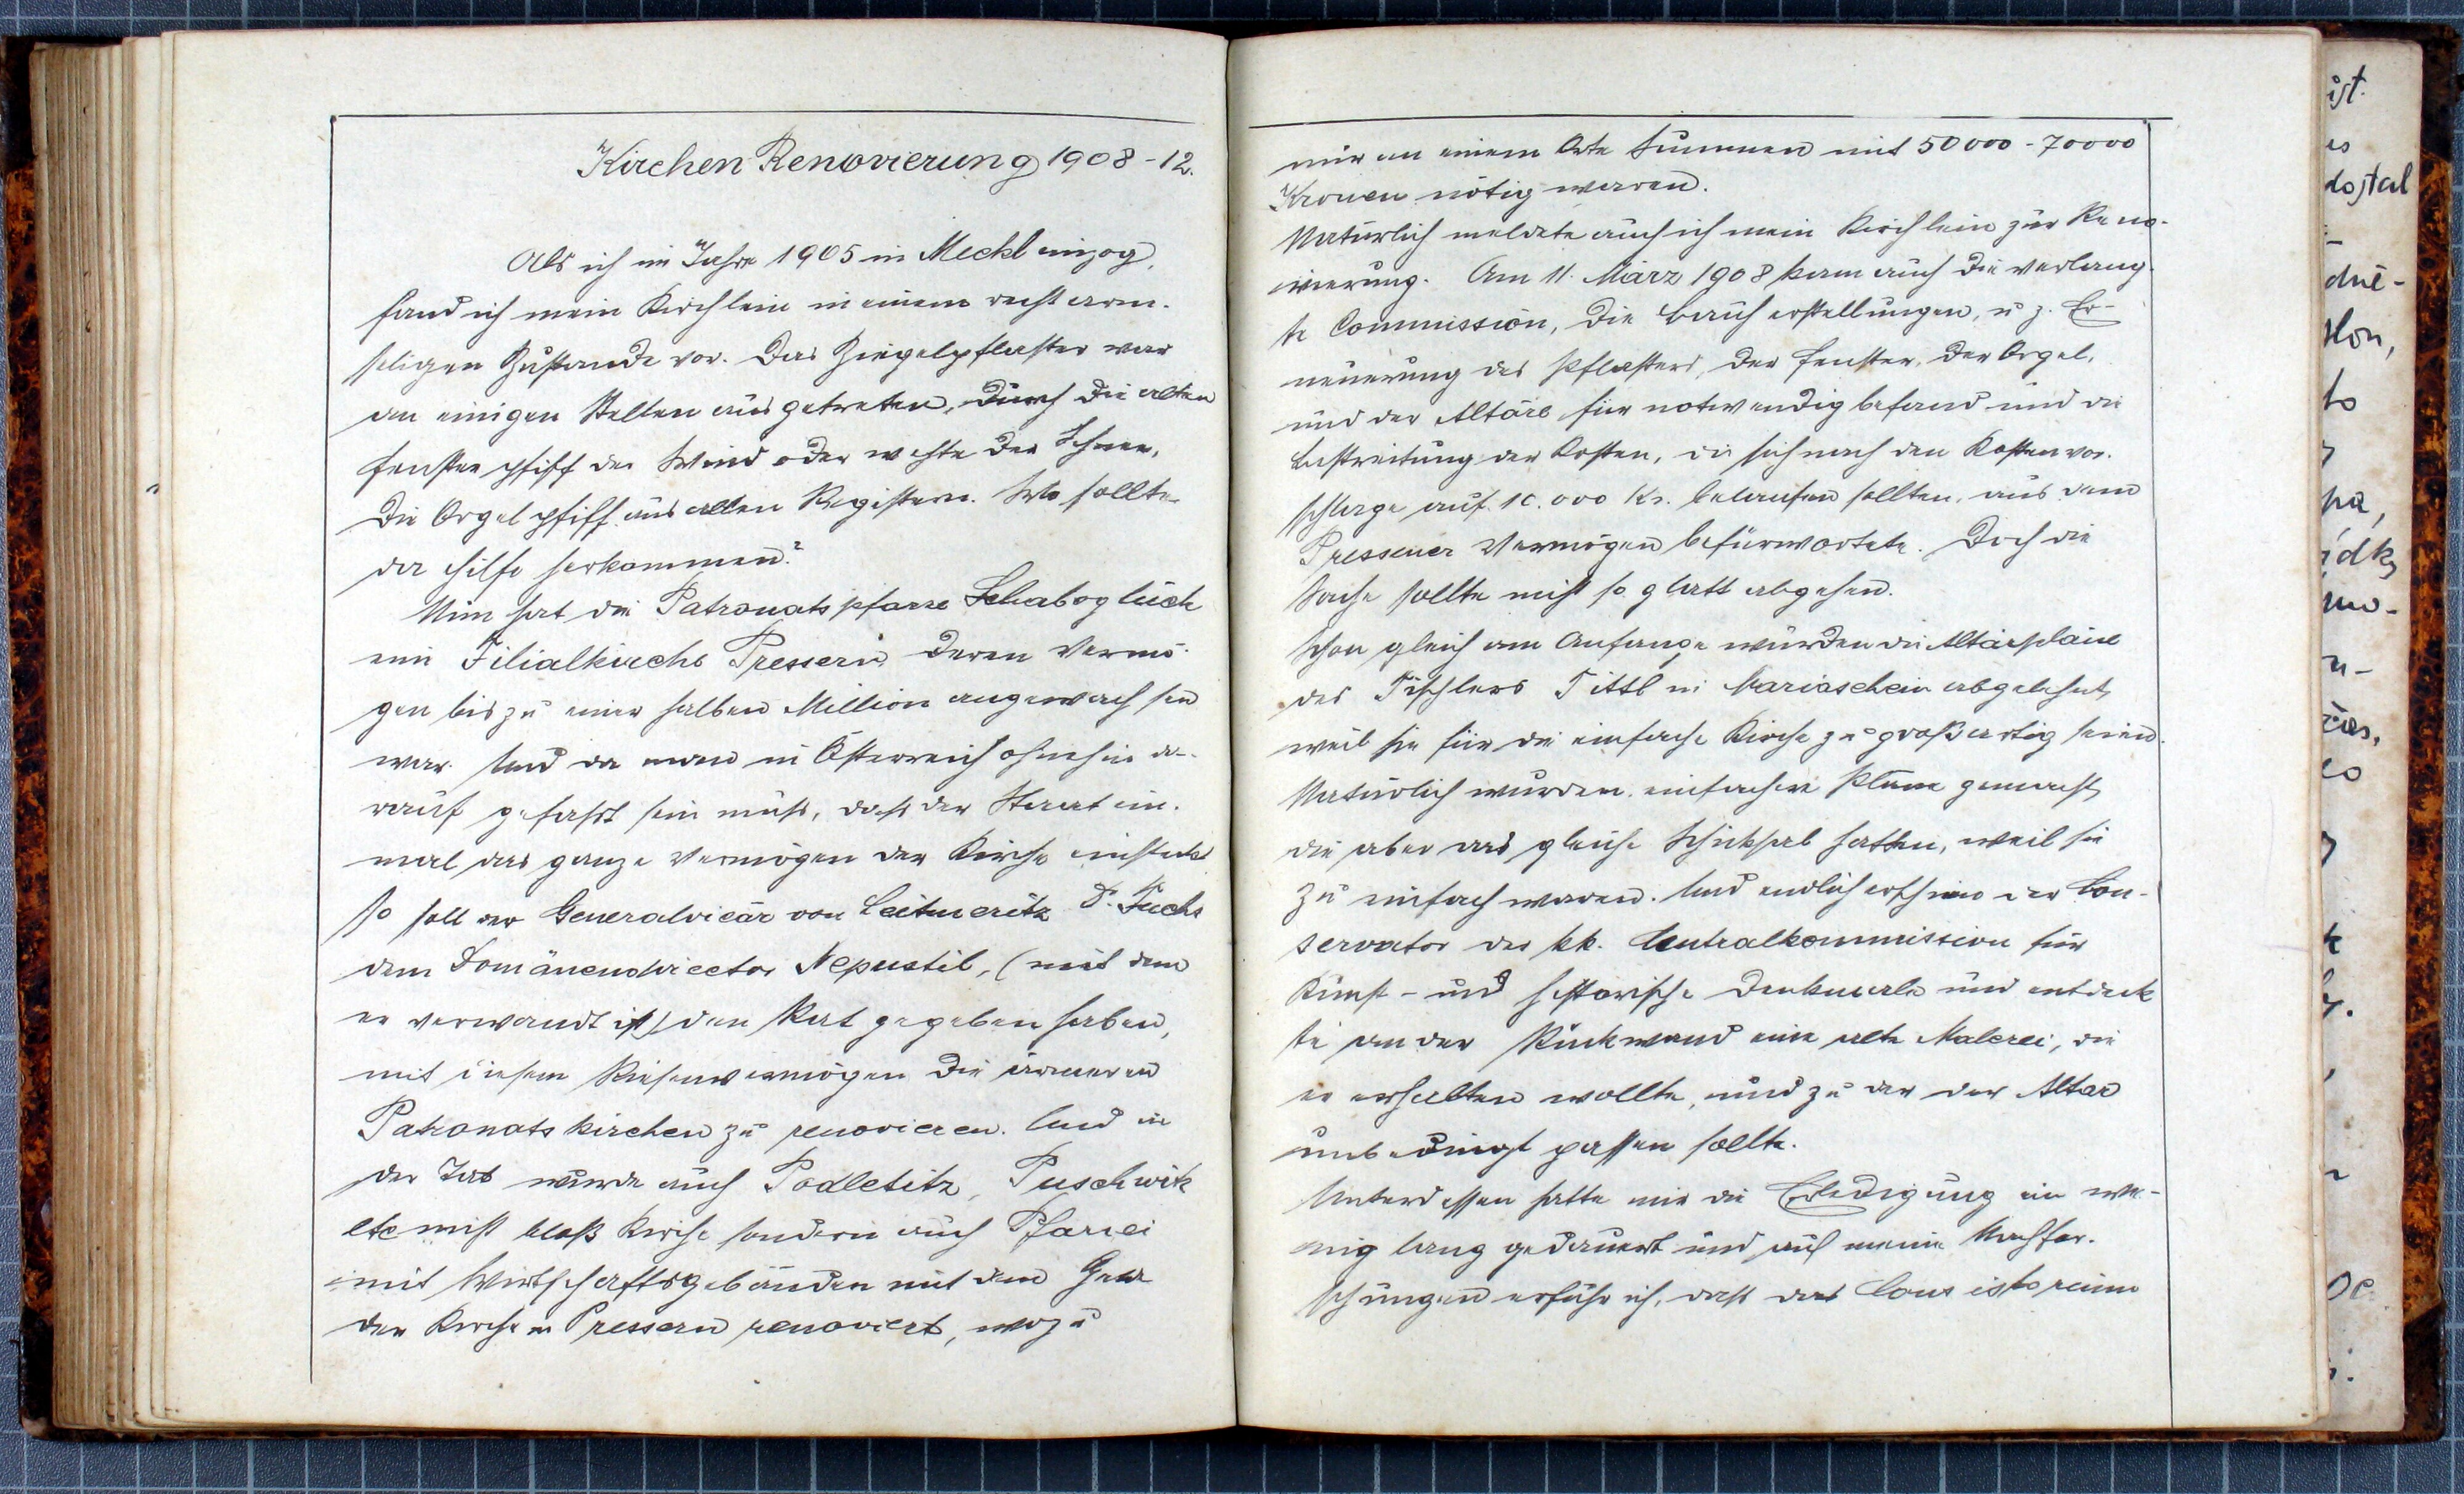 Kirchen Renovierung 1908-12.
Als ich im Jahre 1905 in Meckl einzog,
fand ich mein Kirchlein in einem recht arm-
seligen Zustande vor. Das Ziegelpflaster war
an einigen Stellen ausgetreten, durch die alten
Fenster pfiff der Wind oder wehte der Schnee,
Die Orgel pfiff aus allen Registern. Wo sollte
da Hilfe herkommen?
Nun hat die Patronatspfarre Schaboglück
eine Filialkirche Pressern deren Vermö-
gen bis zu einer halben Million angewachsen
war. Und da man in Österreich ohnehin da-
rauf gefaßt sein muß, daß der Staat ein-
mal das ganze Vermögen der Kirche einsteckt
so soll der Generalvicär von Leitmeritz Dr. Fuchs
dem Domänendirector Nepustil, (mit dem
er verwandt ist) den Rat gegeben haben,
mit diesem Riesenvermögen die ärmeren
Patronatskirchen zu renovieren. Und in
der Tat wurde auch Podletitz, Puschwitz
etc nicht bloß Kirche sondern auch Pfarrei
mit Wirtschaftsgebäuden mit dem Gelde
der Kirche in Pressern renoviert, wozu
nur an einem Orte Summen mit 50000-70000
Kronen nötig waren.
Natürlich meldete auch ich mein Kirchlein zur Reno-
vierung. Am 11. März 1908 kam auch die verlang-
te Commission, die Bauherstellungen, u. z. Er-
neuerung des Pflasters, der Fenster, der Orgel,
und der Altäre für notwendig befand und die
Bestreitung der Kosten, die sich nach dem Kostenvor-
schlage auf 10.000 Kr. belaufen sollten, aus dem
Pressener Vermögen befürwortete. Doch die
Sache sollte nicht so glatt abgehen.
Schon gleich am Anfange wurden die Altarpläne
des Tischlers Tittl in Mariaschein abgelehnt,
weil sie für die einfache Kirche zu großartig seien.
Natürlich wurden einfachere Pläne gemacht,
die aber das gleiche Schicksal hatten, weil sie
zu einfach waren. Und endlich erschien der Con-
servator der kk. Centralkommission für
Kunst- und historische Denkmale und entdeck
te an der Rückwand eine alte Malerei, die
er erhalten wollte, und zu der der Altar
unbedingt passen sollte.
Unterdessen hatte mir die Erledigung ein we-
nig lang gedauert und auf meine Nachfor-
schungen erfuhr ich, daß das Consistorium